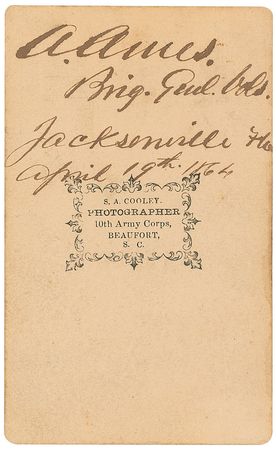 A. Ames.
Brig. Genl. Vols.
Jacksonville Fla
April 19th. 1864
S. A. COOLEY.
PHOTOGRAPHER
10th Army Corps,
BEAUFORT,
S. C.